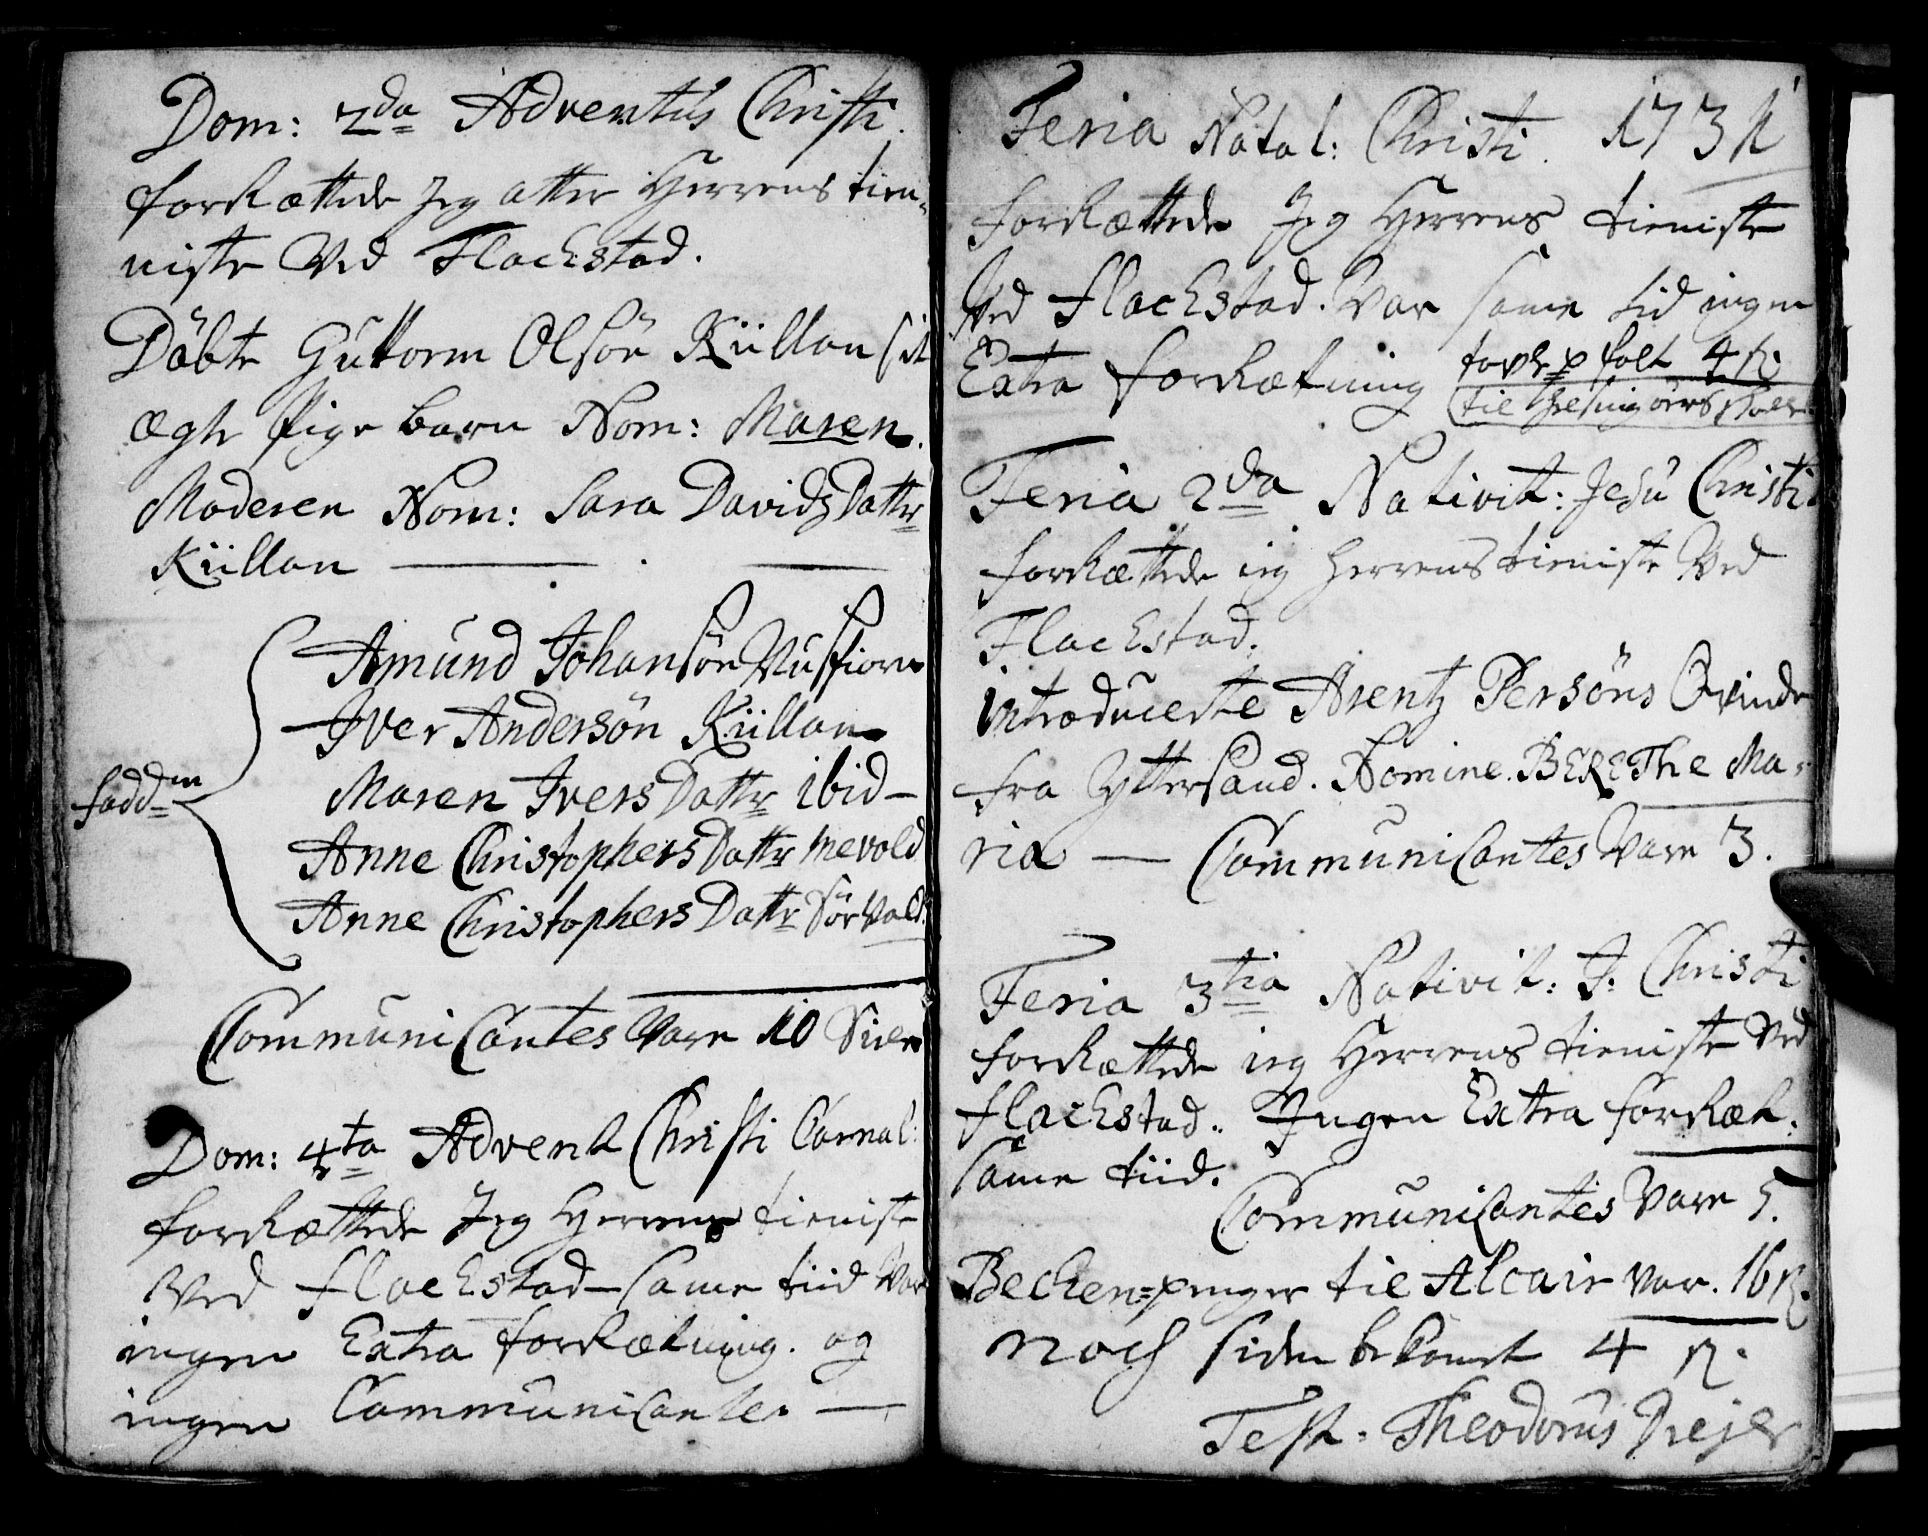 Dom: 2da Adventus Christi.
forRættede Jeg atter Herrens tien,
niste Ved Flackstad.
Döbte Guttorm Olsön Kiillan sit
ægte Pige barn Nom: Maren.
Moderen Nom: Sara Davidz Dattr
Kiillan
Amund Johansön Nusfiorn
Iver Andersön Kiillan
Maren Ivers Dattr ibid
fadd=rn
Anne Christophers Dattr mevold
Anne Christophers Dattr Sörvaed
Communicantes Vare 10 Siæle
Dom: 4ta Advent Christi Carnal:
forRættede Jeg Herrens tieniste
Ved Flackstad – same tiid Var
ingen Extra forRætning. og
ingen Communicante.
Feria Natal: Christi. 1731
forRættede Jeg Herrens tieniste
Ved Flackstad. Var same tid ingen
Extra forRætning
til Helsingörs
Feria 2da Nativit: Jesu Christi.
forRættede ieg Herrens tieniste Ved
Flackstad.
introducerte Arentz Persöns Qvinde
fra Yttersand. Nomine. BERETHe Ma-
ria — Communicantes Vare 3.
Feria 3tia Nativit: J. Christi
forRættede ieg Herrens tieniste Ved
Flackstad. Ingen Extra forRæt.
same tiid.
Communicantes Vare 5.
Becken=penger til Alcair var. 16 ß.
noch siden bekomt 4 ß.
Test. Theodorus